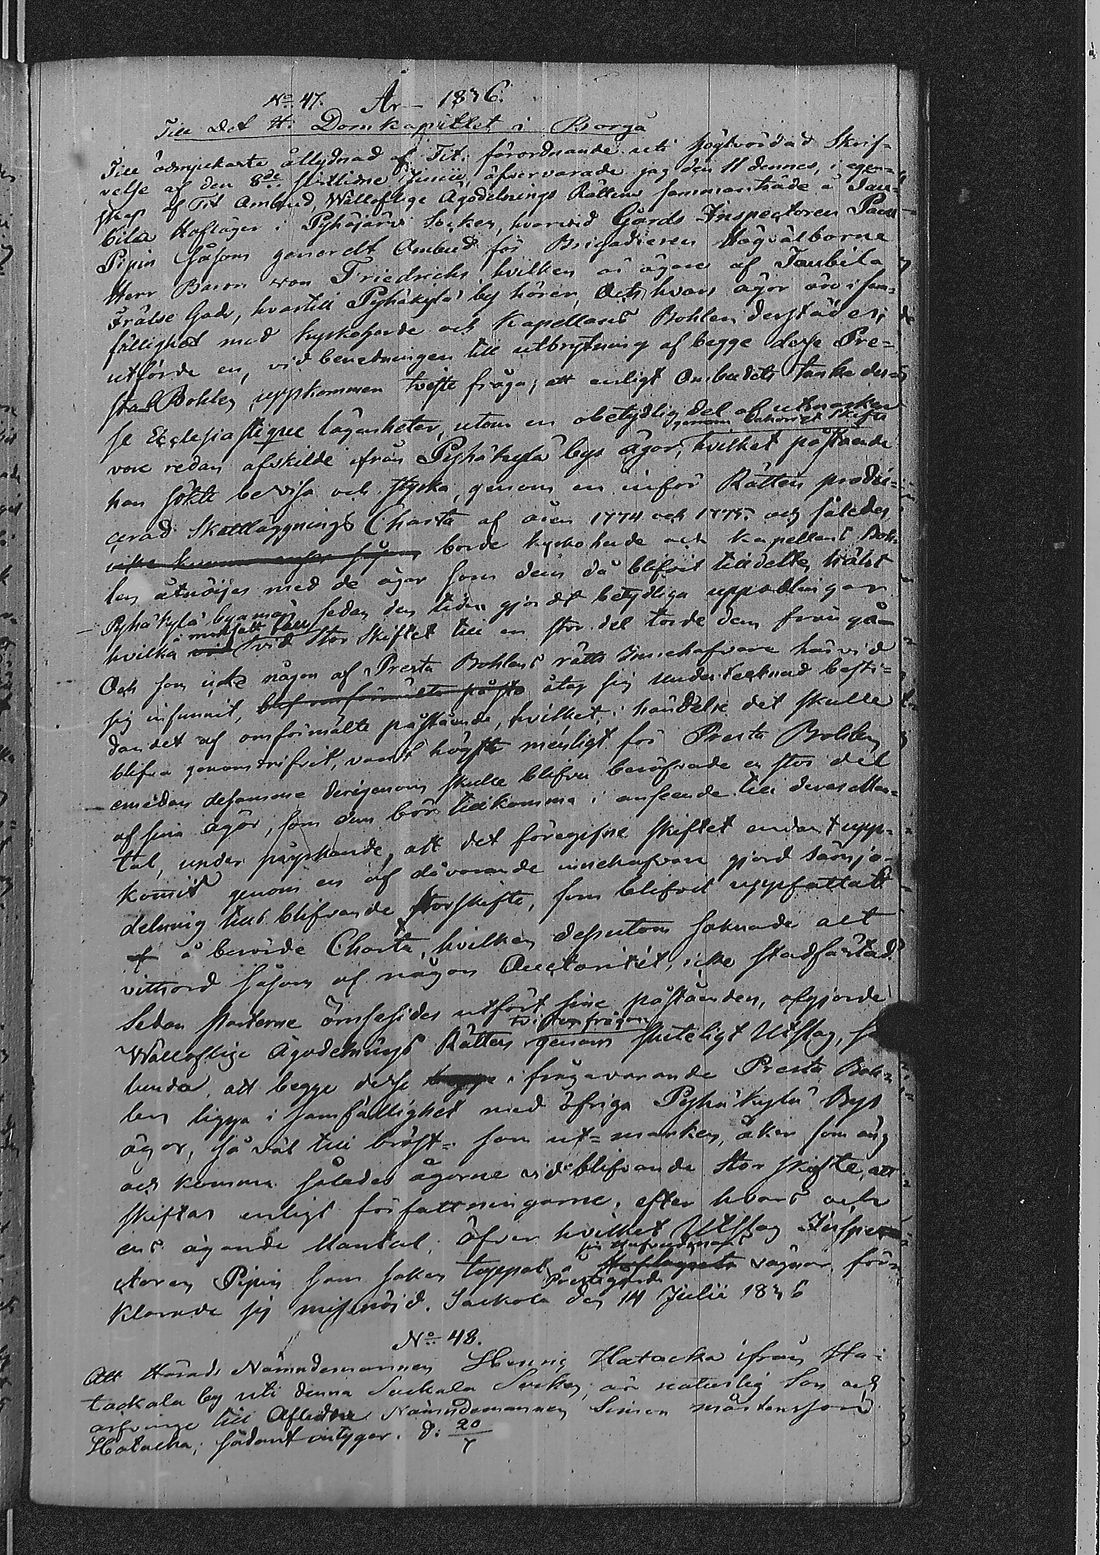 No 47. År 1836.
Till det H. Domkapitlet i Borgå
Till ödmjukaste åtlydnad af Tit. förordnande uti högtvördad Skrif-
velse af den 8de sistlidne Junii, öfvervarade jag den 11 dennes, i egen-
skap af Tit Ombud Wälloflige Ägodelnings Rättens sammanträde å Tau-
bila Hofläger i Pyhäjärvi Socken, hvarvid Gårds Inspectoren
Pipin såsom generelt Ombud för Brigadieren Högvälborne
Herr Baron von Friedrichs hvilken är ägare af Taubila
Frälse Gods, hvartill Pyhäkylä by hörer, Och hvars ägor äro i sam-
fällighet med kyrkoherde och Kapellans Bohlen derstädes;
utförde en, vid beredningen till utbrytning af begge desse Pre-
sta Bohlen, uppkommen tviste fråga, att enligt Ombudets tanke des-
se Ecclesiastique lägenheter, utom en obetydlig del af utmarken
genom behörigt skifte
vore redan afskilde ifrån Pyhäkylä bys ägor, hvilket påstående
han sökte bevisa och styrka, genom en inför Rätten produ-
cerad Skattläggnings Charta af åren 1774 och 1775. och således
borde kyrkoherde och Kapellans Boh-
len åtnöijas med de ägor som dem då blifvit tilldelte, hälst
Pyhäkylä byamän sedan den tiden gjordt betydliga uppodlingar
i motsatt fall
hvilka vid Stor Skiftet till en stor del torde dem frångå
Och som icke någon af Presta Bohlens rätts Innehafvare härvid
sig infunnit, åtog sig Undertecknad besti-
dandet af omförmälte påstående, hvilket, i händelse det skulle
blifva genomdrifvit, vard högste menligt för Presta Bohlen
emedan desamme derigenom skulle blifva beröfvade en stor del
af sina ägor, som dem bör tillkomma i anseende till deras Man-
tal, under påyrkande, att det föregifne skiftet endast upp-
kommit genom en af dåvarande innehafvare gjord sämjo-
delning till blifvande storskifte, som blifvit uppfattadt
å berörde Charta, hvilken dessutom saknade alt
vittsord såsom af någon Auctoritet, icke stadfästad.
Sedan parterne ömsesides utfört sine påståenden, afgjorde
tvistefrågan
Wälloflige Ägodelnings Rätten genom skriteligt Utslag, så
lunda, att begge desse i frågavarande Presta Boh-
len ligga i samfällighet med öfriga Pyhäkylä Bys
ägor, så väl till bröst- som ut-marken, åker som äng
och komma således ägorne vid blifvande Stor skifte, att
skiftas enligt författningarne, efter hvars och
ens ägande Mantal; öfver hvilket Utslag Inspec-
sin Hufvudmans
ctoren Pipin som saken tappat å vägnar för-
Prestgårds
klarade sig missnöjd. Sackola den 14 Julii 1836
No 48.
Att Härads Nämndemannen Henric Hatacka ifrån Ha-
tackala by uti denna Sackola Socken, är naturlig Son och
arfvinge till Aflidne Nämndemannen Simon Mårtensson
Hatacka, sådant intygar. d. 20/7